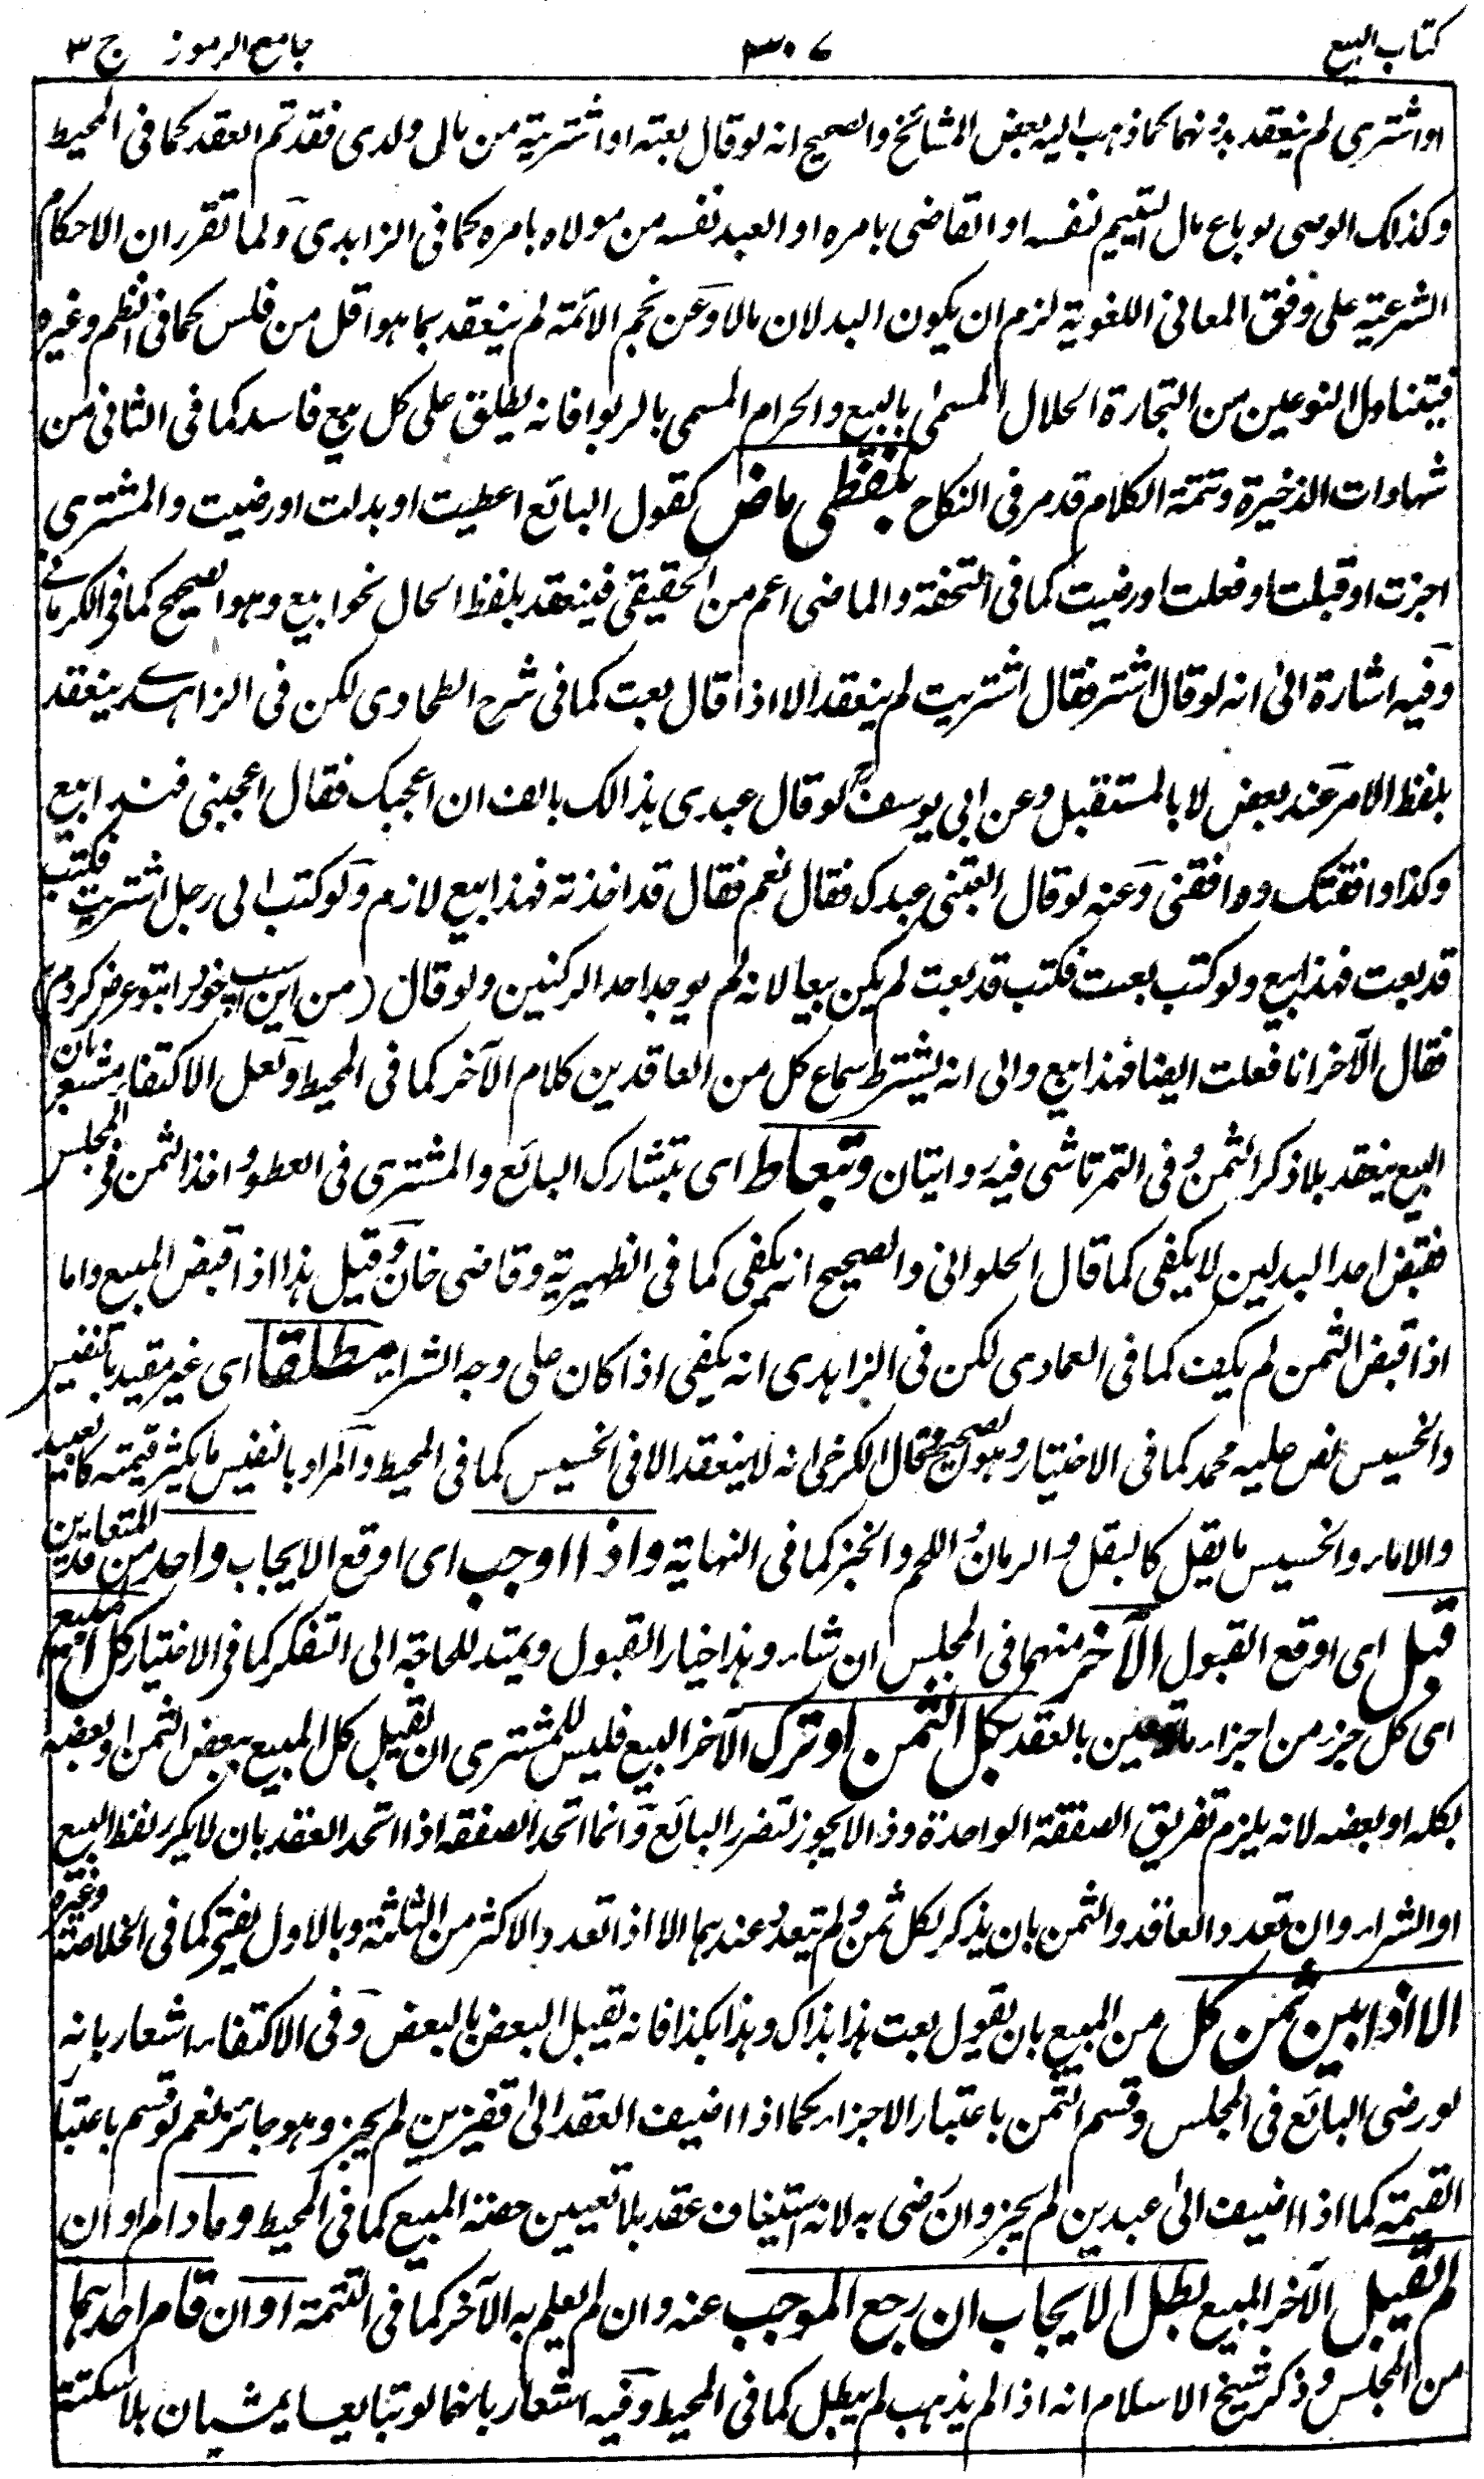 كتاب البيع ٣٠٧ جامع الرموز ج ٣
او اشترى لم ينعقد بدونهما كما ذهب اليه بعض المشائخ والصحيح انه لو قال بعته او اشتريته من مال ولدى فقد تم العقد كما فى المحيط
وكذلك الوصى لو باع مال اليتيم لنفسه او القاضى بامره او العبد نفسه من مولاه بامره كما فى الزاهدى ولما تقرر ان الاحكام
الشرعية على وفق المعانى اللغوية لزم ان يكون البدلان مالا وعن نجم الائمة لم ينعقد بما هو اقل من فلس كما فى النظم وغيره
فيتناول النوعين من التجارة الحلال المسمى بالبيع والحرام المسمى بالربوا فانه يطلق على كل بيع فاسد كما فى الثانى من
شهادات الذخيرة وتتمة الكلام قد مر فى النكاح بلفظى ماض كقول البائع اعطيت او بدلت او رضيت والمشترى
اجزت او قبلت او فعلت او رضيت كما فى التحفة والماضى اعم من الحقيقى فينعقد بلفظ الحال نحو ابيع وهو الصحيح كما فى الكرمانى
وفيه اشارة الى انه لو قال اشتر فقال اشتريت لم ينعقد الا اذا قال بعت كما فى شرح الطحاوى لكن فى الزاهدى ينعقد
بلفظ الامر عند بعض لا بالمستقبل وعن ابى يوسف لو قال عبدى بذالك بالف ان اعجبك فقال اعجبنى فهذا بيع
وكذا وافقتك ووافقنى وعنه لو قال ابعتنى عبدك فقال نعم فقال قد اخذته فهذا بيع لازم ولو كتب الى رجل اشتريت فكتب
قد بعت فهذا بيع ولو كتب بعت فكتب قد بعت لم يكن بيعا لانه لم يوجد احد الركنين ولو قال (من اين اسپ خود را بتو عرض كردم)
فقال الآخر انا فعلت ايضا فهذا بيع والى انه يشترط سماع كل من العاقدين كلام الآخر كما فى المحيط ولعل الاكتفاء مشعر بان
البيع ينعقد بلا ذكر الثمن وفى التمرتاشى فيه روايتان وبتعاط اى بتشارك البائع والمشترى فى العطو واخذ الثمن فى المجلس
فقبض احد البدلين لا يكفى كما قال الحلوانى والصحيح انه يكفى كما فى الظهيرية وقاضى خان وقيل هذا اذا قبض المبيع واما
اذا قبض الثمن لم يكف كما فى العمادى لكن فى الزاهدى انه يكفى اذا كان على وجه الشراء مطلقا اى غير مقيد بالنفيس
والخسيس نص عليه محمد كما فى الاختيار وهو الصحيح وقال الكرخى انه لا ينعقد الا فى الخسيس كما فى المحيط والمراد بالنفيس ما يكثر قيمته كالعبيد
والاماء والخسيس ما يقل كالبقل والرمان واللحم والخبز كما فى النهاية واذا اوجب اى اوقع الايجاب واحد من المتعاقدين
قبل اى اوقع القبول الآخر منهما فى المجلس ان شاء وهذا خيار القبول ويمتد للحاجة الى التفكر كما فى الاختيار كل المبيع
اى كل جزء من اجزاء ما تعين بالعقد بكل الثمن او ترك الآخر البيع فليس للمشترى ان يقبل كل المبيع ببعض الثمن او بعضه
بكله او بعضه لانه يلزم تفريق الصفقة الواحدة وذا لا يجوز لتضرر البائع وانما اتحد الصفقة اذا اتحد العقد بان لا يكرر لفظ البيع
او الشراء وان تعدد العاقد والثمن بان يذكر لكل ثمن ولم يتعدد عندهما الا اذا تعدد والاكثر من الثلثة وبالاول يفتى كما فى الخلاصة وغيره
الا اذا بين ثمن كل من المبيع بان يقول بعت هذا بذاك وهذا بكذا فانه يقبل البعض بالبعض وفى الاكتفاء اشعار بانه
لو رضى البائع فى المجلس وقسم الثمن باعتبار الاجزاء كما اذا اضيف العقد الى قفيزين لم يجز وهو جائز نعم لو قسم باعتبار
القيمة كما اذا اضيف الى عبدين لم يجز وان رضى به لانه استيناف عقد بلا تعيين حصة المبيع كما فى المحيط وما دام او ان
لم يقبل الآخر المبيع بطل الايجاب ان رجع الموجب عنه وان لم يعلم به الآخر كما فى التتمة او ان قام احدهما
من المجلس وذكر شيخ الاسلام انه اذا لم يذهب لم يبطل كما فى المحيط وفيه اشعار بانهما لو تبايعا يمشيان بلا سكتة